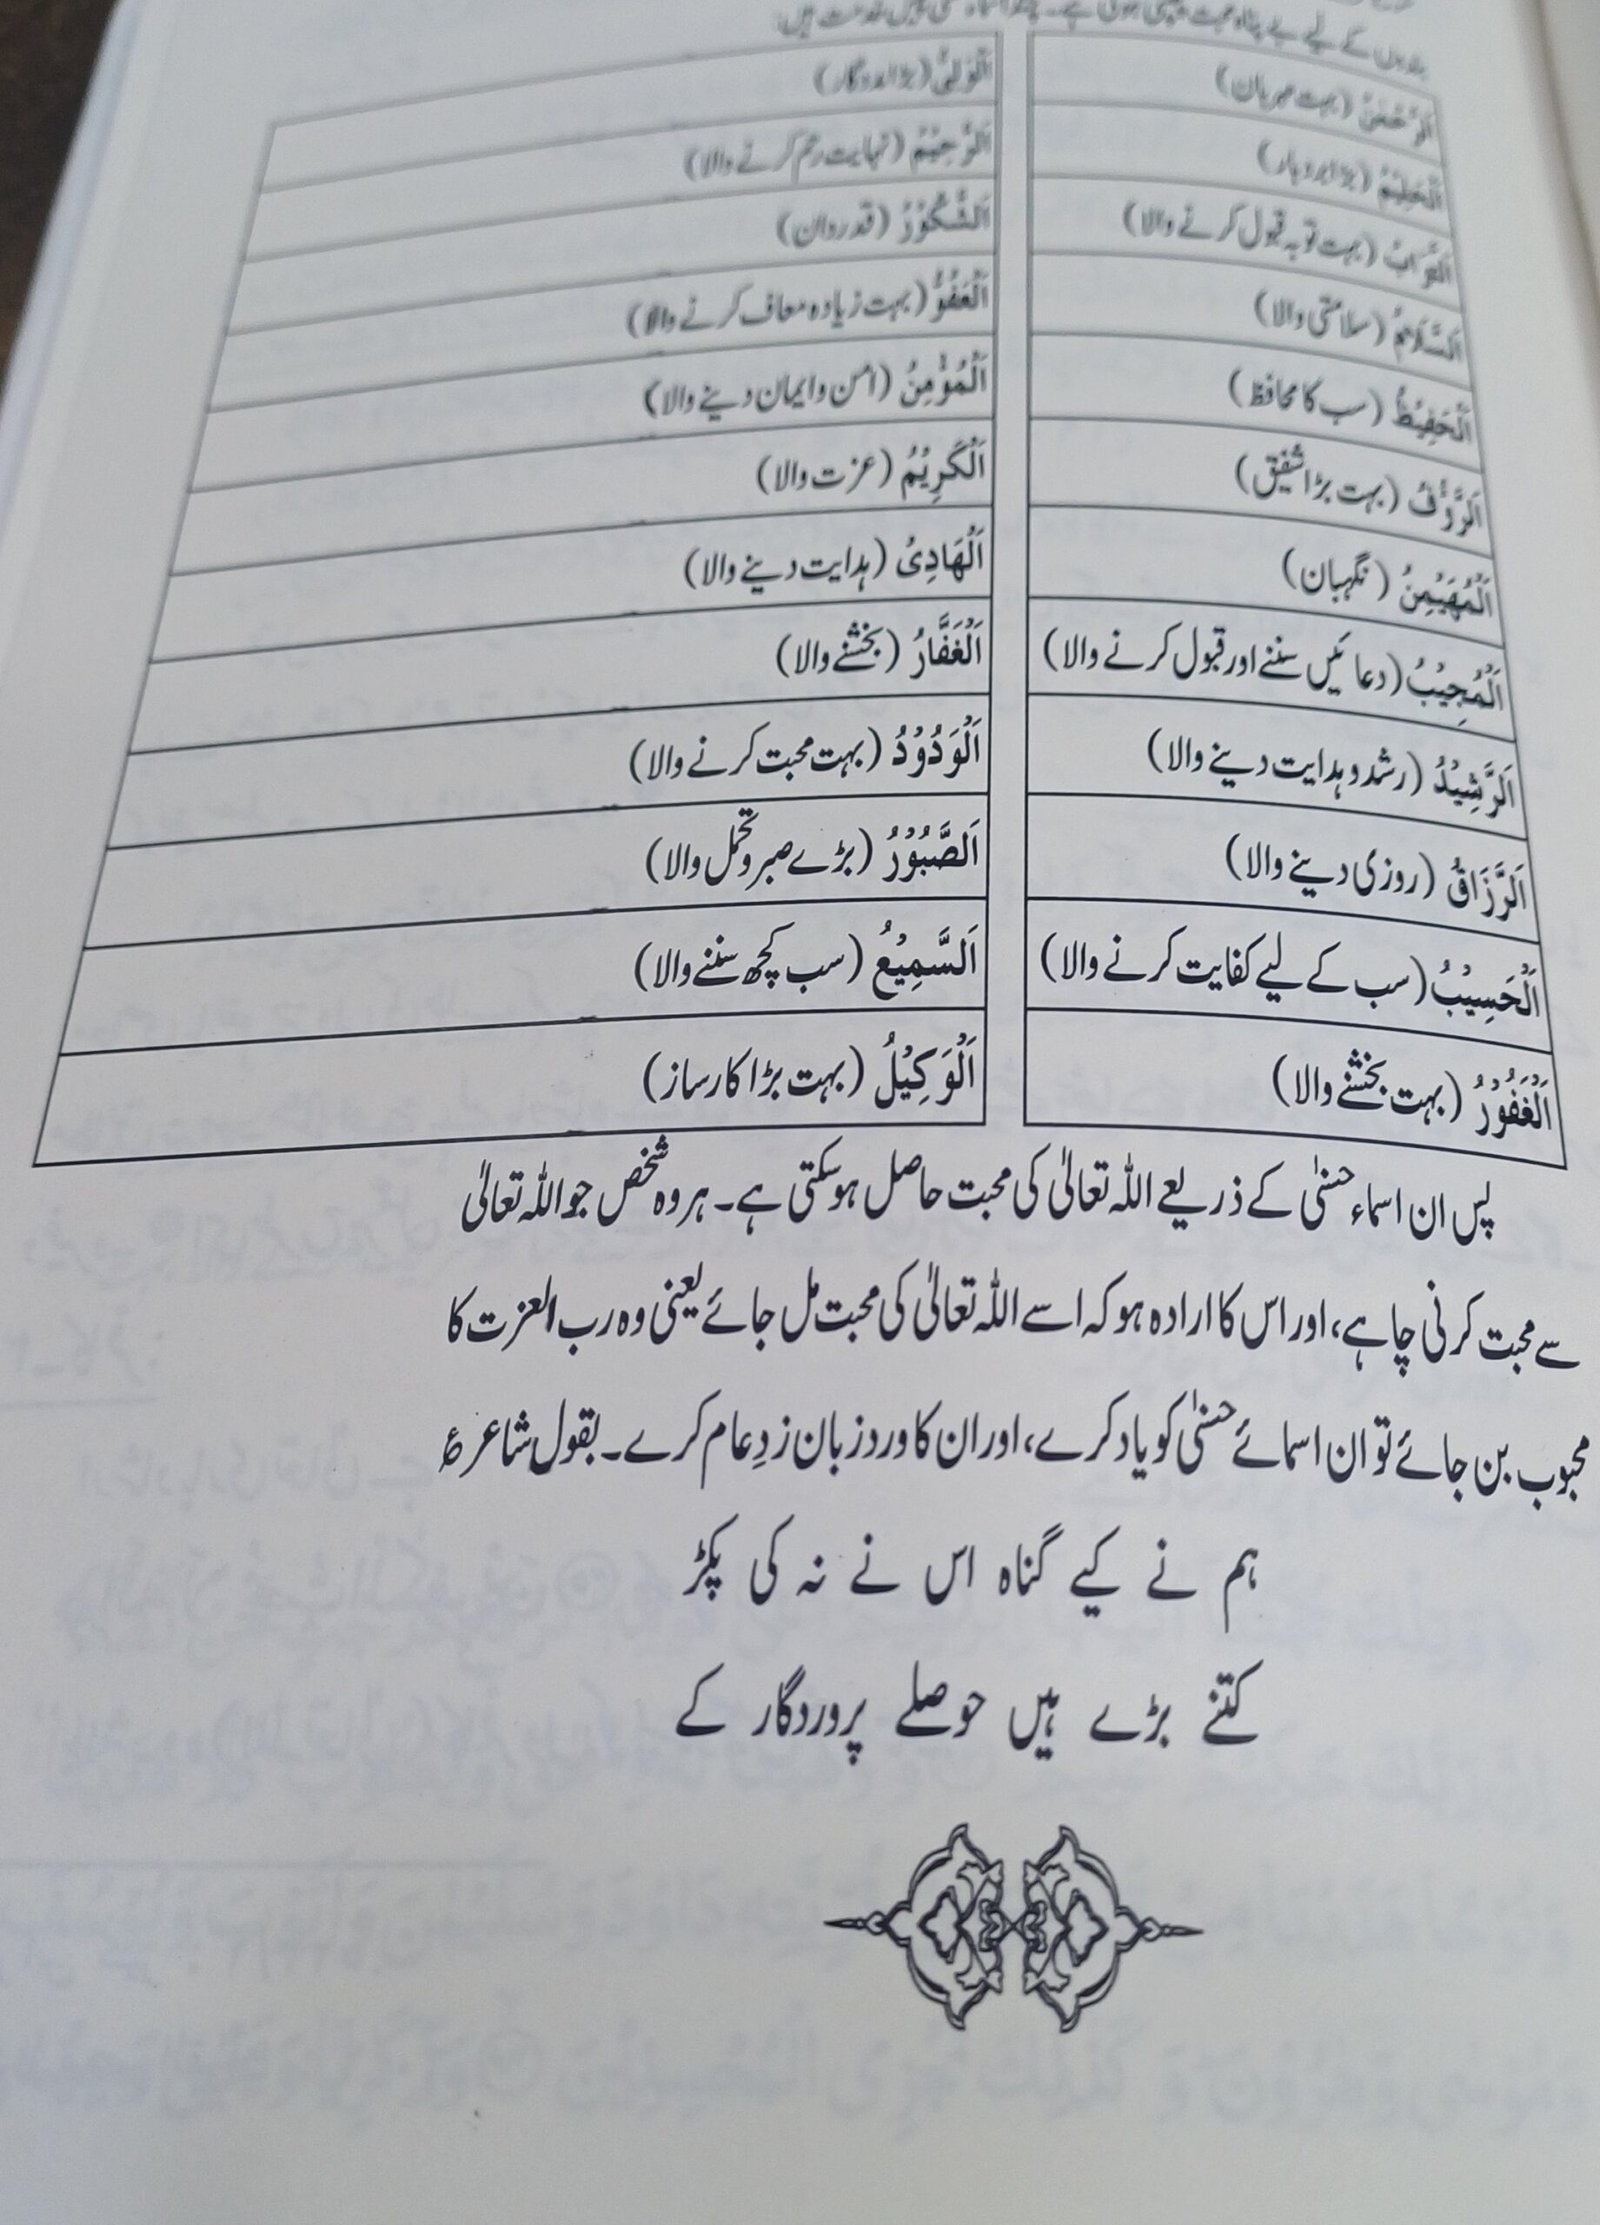 بندوں کے لیے بے پناہ محبت
اَلرَّحْمٰنُ (بہت مہربان) اَلْوَلِیُّ (بڑا مددگار)
اَلْحَلِیْمُ (بڑا بردبار) اَلرَّحِیْمُ (نہایت رحم کرنے والا)
اَلتَّوَّابُ (بہت توبہ قبول کرنے والا) اَلشَّکُوْرُ (قدردان)
اَلسَّلَامُ (سلامتی والا) اَلْعَفُوُّ (بہت زیادہ معاف کرنے والا)
اَلْحَفِیْظُ (سب کا محافظ) اَلْمُؤْمِنُ (امن و ایمان دینے والا)
اَلرَّءُوْفُ (بہت بڑا شفیق) اَلْکَرِیْمُ (عزت والا)
اَلْمُهَیْمِنُ (نگہبان) اَلْهَادِیُ (ہدایت دینے والا)
اَلْمُجِیْبُ (دعائیں سننے اور قبول کرنے والا) اَلْغَفَّارُ (بخشنے والا)
اَلرَّشِیْدُ (رشد و ہدایت دینے والا) اَلْوَدُوْدُ (بہت محبت کرنے والا)
اَلرَّزَّاقُ (روزی دینے والا) اَلصَّبُوْرُ (بڑے صبر و تحمل والا)
اَلْحَسِیْبُ (سب کے لیے کفایت کرنے والا) اَلسَّمِیْعُ (سب کچھ سننے والا)
اَلْغَفُوْرُ (بہت بخشنے والا) اَلْوَکِیْلُ (بہت بڑا کارساز)
پس ان اسماء حسنیٰ کے ذریعے اللہ تعالیٰ کی محبت حاصل ہو سکتی ہے۔ ہر وہ شخص جو اللہ تعالیٰ
سے محبت کرنی چاہے، اور اس کا ارادہ ہو کہ اسے اللہ تعالیٰ کی محبت مل جائے یعنی وہ رب العزت کا
محبوب بن جائے تو ان اسمائے حسنیٰ کو یاد کرے، اور ان کا ورد زبان زدِ عام کرے۔ بقول شاعر ؏
ہم نے کیے گناہ اس نے نہ کی پکڑ
کتنے بڑے ہیں حوصلے پروردگار کے